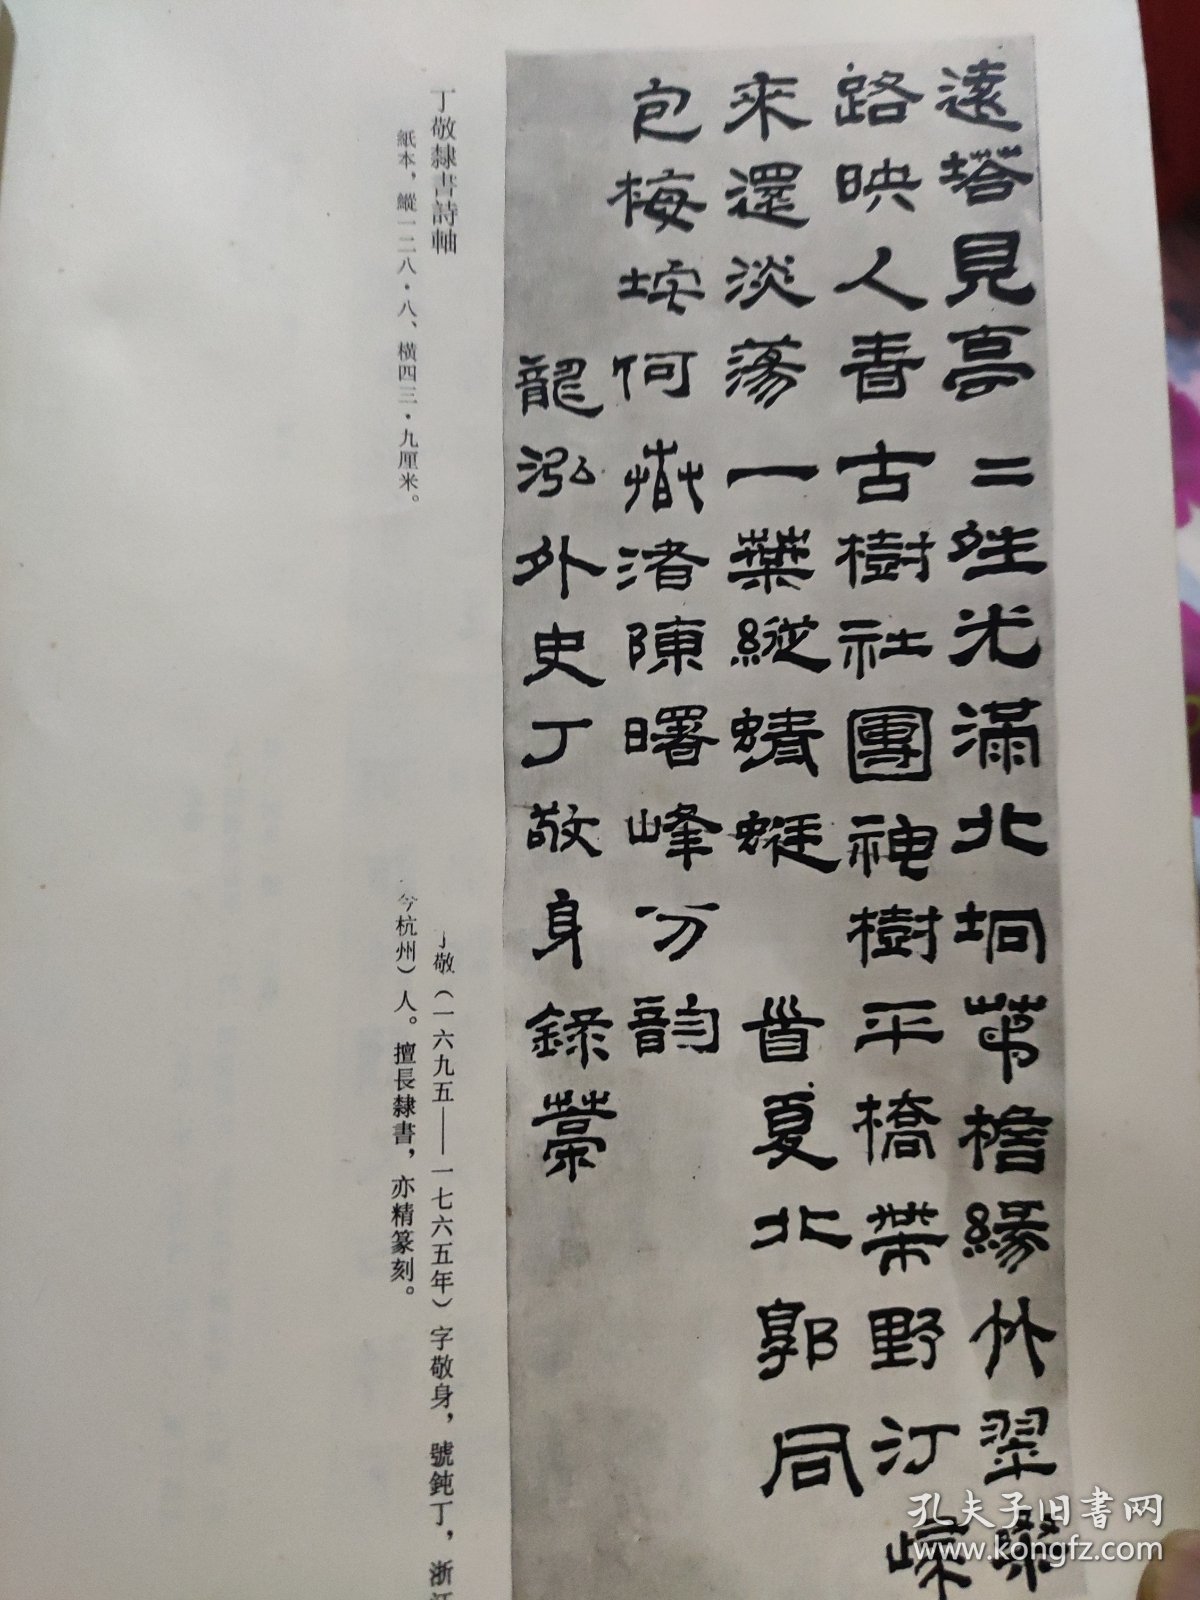 遠塔見亭二性光滿北坰芾檐緣竹翠
路映人春古樹社團神樹平橋帶野汀
來還淡蕩一葉縱蜻蜓 首夏北郭同
包梅垞何 渚陳曙峰分韵
龍泓外史丁敬身錄藁
丁敬隸書詩軸
紙本，縱一二八·八、橫四三·九厘米。
丁敬（一六九五——一七六五年）字敬身，號鈍丁，浙江
今杭州）人。擅長隸書，亦精篆刻。
孔夫子旧书网
www.kongfz.com